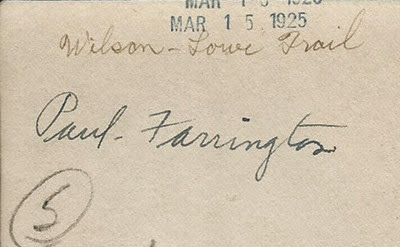 MAR 15 1925
Wilson - Lowe Trail
Paul Farrington
5